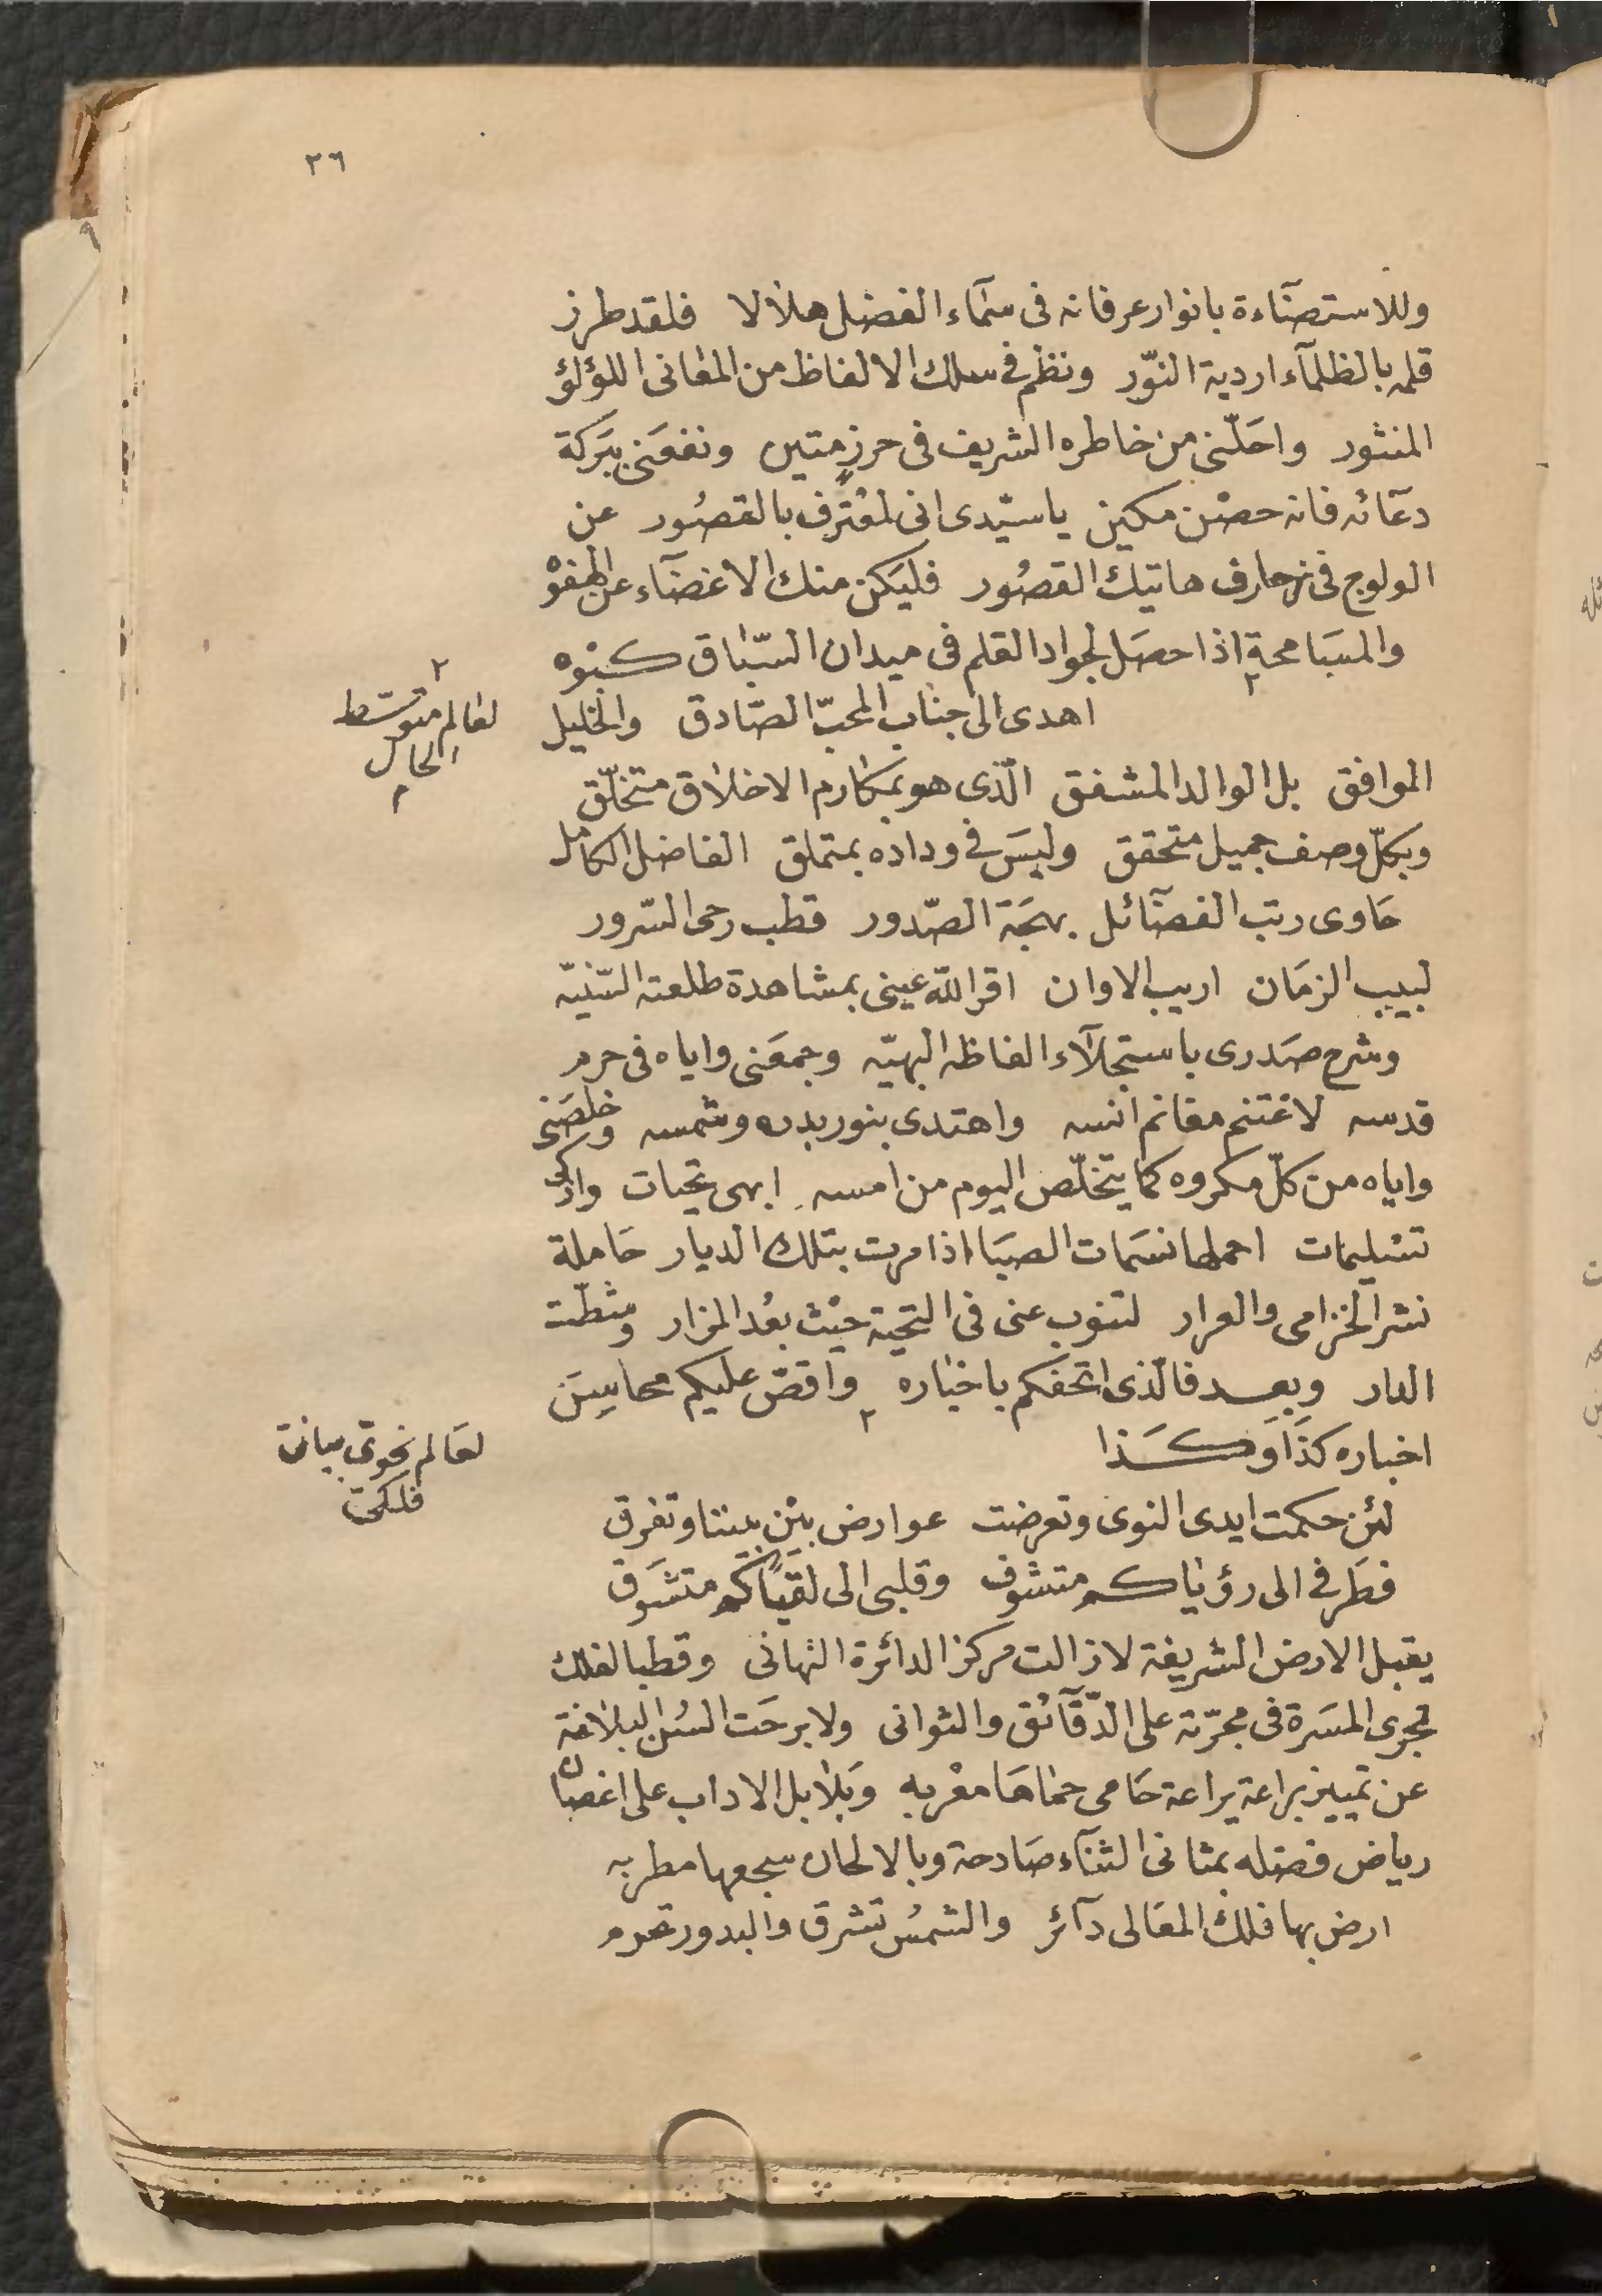 ٢٦
وللاستضآءة بانوار عرفانه فى سمآء الفضل هلالا فلقد طرز
قلمه بالظلمآء اردية النّور ونظم فى سلك الالفاظ من المعانى اللؤلؤ
المنثور واحلّنى من خاطره الشريف فى حرزٍ متين ونفعنى ببركة
دعآئه فانه حصْن مكين ياسيّدى انى لمعْترف بالقصُور عن
الولوج فى زخارف هاتيك القصُور فليكن منك الاغضآء عن الهفوْ
والمسَامحة اذا حصَل لجواد القلم فى ميدان السّباق كبْوه
لعالم متوسّط
الحال
اهدى الى جناب المحبّ الصّادق والخليل
الموافق بل الوالد المشفق الّذى هو بمكارم الاخلاق متخلّق
وبكلّ وصف جميل متحقق وليسَ فى وداده بمتملق الفاضل الكامل
حَاوى رتب الفضآئل بهجَة الصّدور قطب رحى السّرور
لبيب الزمَان اريب الاوان اقر الله عينى بمشاهدة طلعته السّنيّه
وشرح صَدرى باستجلآء الفاظه البهيّه وجمعَنى واياه فى حرم
قدسه لاغتنم مغانم انسه واهتدى بنور بدره وشمسه وخلصَنى
واياه من كلّ مكروه كما يتخلّص اليوم من امسه ابهى تحيات وازكى
تسْليمات احملها نسَمات الصبَا اذا مرت بتلك الديار حَاملة
نشر الخزامى والعرار لتنوب عنى فى التحية حيْث بعُد المزار وشطّت
الدار وبعد فالّذى اتحفكم باخباره واقصّ عليكم محاسِنَ
اخباره كذَا وَكَذا
لعَالم نحوىّ بيانىّ
فلكىّ
لئن حكمت ايدى النوى وتعرضت عوارض بيْن بيننا وتفرق
فطَرفى الى رؤياكم متشوف وقلبى الى لقياكم متشَوق
يقبل الارض الشريفة لازالت مركز الدائرة التهانى وقطبا لفلك
تجرى المسَرة فى مجرّته على الدّقآئق والثوانى ولابرحَت السُن البلاغة
عن تمييز براعة يراعة حَامى حمَاهَا معْربه وَبلابل الاداب على اغصان
رياض فضله بمثانى الثنآء صَادحة وبالالحان سجعها مطربه
ارض بها فلك المعَالى دآئر والشمسُ تشرق والبدور تحوم